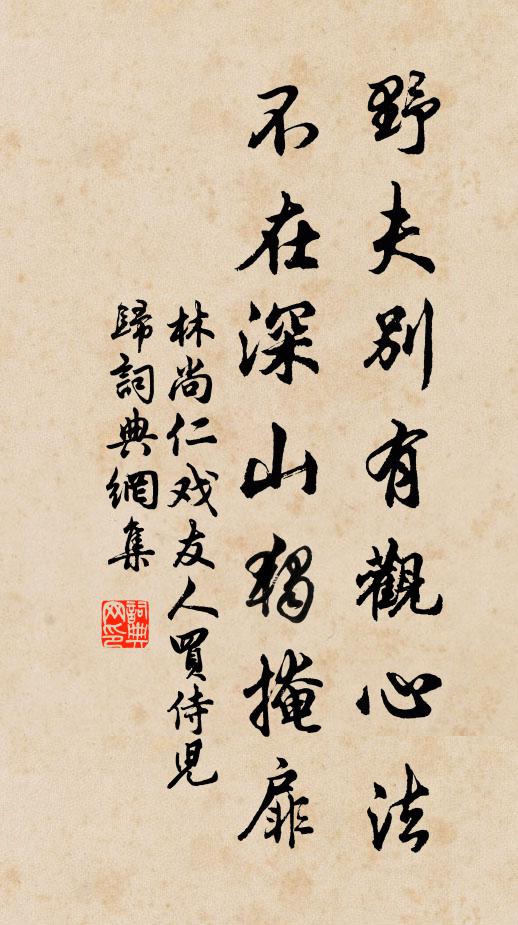 野夫別有觀心法
不在深山獨掩扉
林尚仁戏友人買侍児
歸詞典網集
詞典
网印